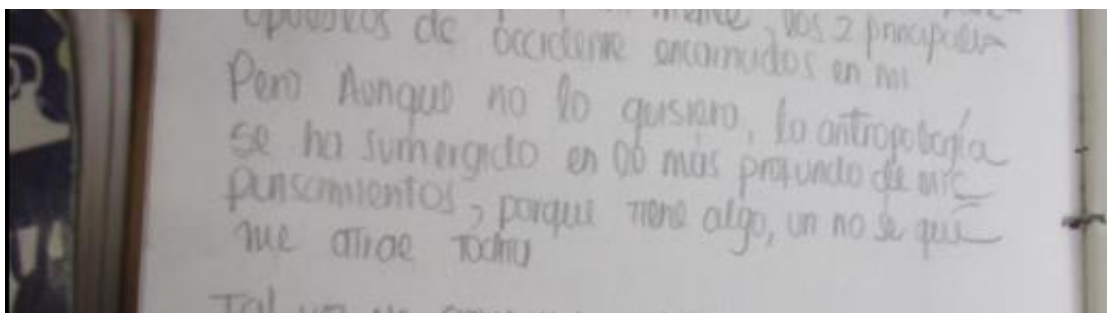 opuestos de occidente encarnados en mi
Pero Aunque no lo quisiera, la antropología
se ha sumergido en lo más profundo de mis
pensamientos, porque tiene algo, un no se qué
me atrae
Tal vez